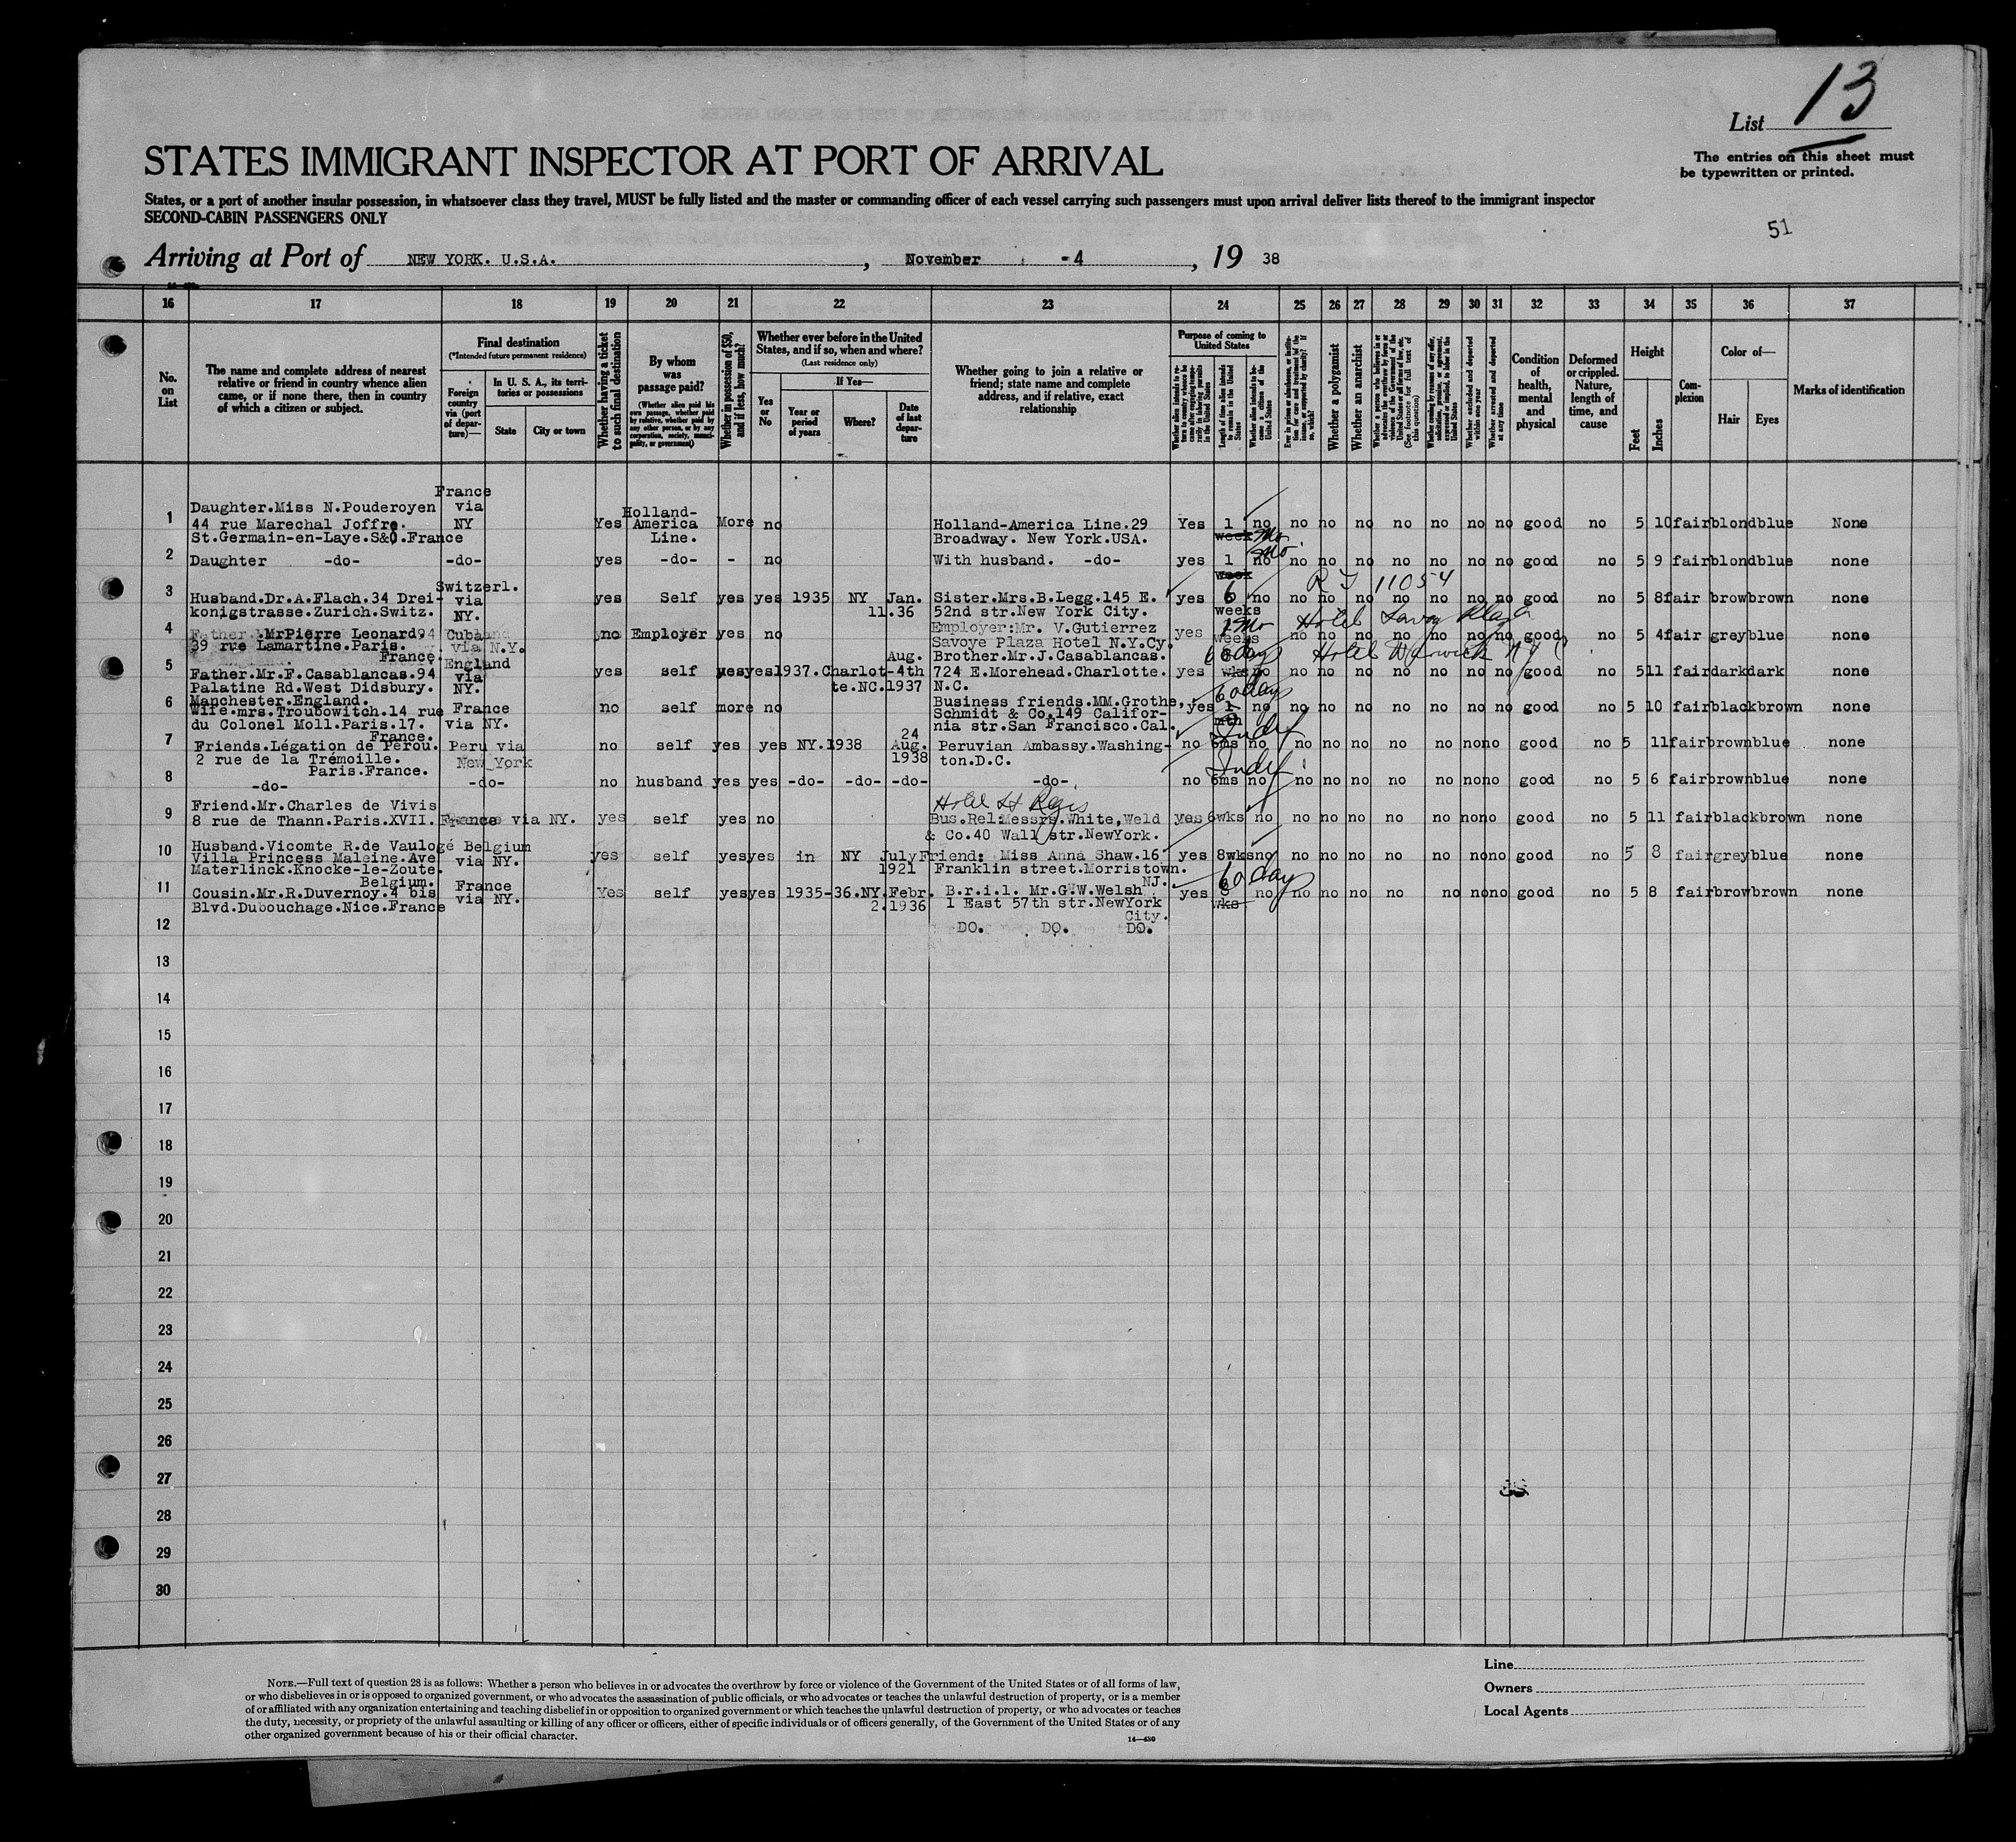 List 13
The entries on this sheet must
be typewritten or printed.
STATES IMMIGRANT INSPECTOR AT PORT OF ARRIVAL
States, or a port of another insular possession, in whatsoever class they travel, MUST be fully listed and the master or commanding officer of each vessel carrying such passengers must upon arrival deliver lists thereof to the immigrant inspector
SECOND-CABIN PASSENGERS ONLY
51
Arriving at Port of NEW YORK. U.S.A. , November -4 , 19 38
16 17 18 19 20 21 22 23 24 25 26 27 28 29 30 31 32 33 34 35 36 37
No. on List
The name and complete address of nearest relative or friend in country whence alien came, or if none there, then in country of which a citizen or subject.
Final destination
(*Intended future permanent residence)
Foreign country via (port of departure)—
In U. S. A., its territories or possessions
State
City or town
Whether having a ticket to such final destination
By whom was passage paid?
(Whether alien paid his own passage, whether paid by relative, whether paid by any other person, or by any corporation, society, municipality, or government)
Whether in possession of $50, and if less, how much?
Whether ever before in the United States, and if so, when and where?
(Last residence only)
Yes or No
If Yes—
Year or period of years
Where?
Date of last departure
Whether going to join a relative or friend; state name and complete address, and if relative, exact relationship
Purpose of coming to United States
Length of time alien intends to remain in the United States
Whether alien intends to become a citizen of the United States
Whether a polygamist
Whether an anarchist
Whether excluded and deported within one year
Whether arrested and deported at any time
Condition of health, mental and physical
Deformed or crippled. Nature, length of time, and cause
Height
Feet
Inches
Complexion
Color of—
Hair
Eyes
Marks of identification
1 Daughter.Miss N.Pouderoyen 44 rue Marechal Joffre. St.Germain-en-Laye.S&O.France France via NY Yes Holland-America Line. More no Holland-America Line.29 Broadway. New York.USA. Yes 1 week mo no no no no no no no no good no 5 10 fair blond blue None
2 Daughter -do- -do- yes -do- - no With husband. -do- yes 1 week mo no no no no no no no no good no 5 9 fair blond blue none
3 Husband.Dr.A.Flach.34 Drei-konigstrasse.Zurich.Switz. Switzerl. via NY. yes Self yes yes 1935 NY Jan. 11.36 Sister.Mrs.B.Legg.145 E. 52nd str.New York City. yes 6 weeks no no no no no no no no good no 5 8 fair brow brown none
4 Father.MrPierre Leonard. 39 rue Lamartine.Paris. France. Cuba via N.Y. no Employer yes no Employer:Mr. V.Gutierrez Savoye Plaza Hotel N.Y.Cy. yes weeks no no no no no no no good no 5 4 fair grey blue none
Hotel Savoy Plaza
5 Father.Mr.F.Casablancas.94 Palatine Rd.West Didsbury. Manchester.England. England via NY. yes self yes yes 1937.Charlotte.NC. Aug. 4th 1937 Brother.Mr.J.Casablancas. 724 E.Morehead.Charlotte. N.C. yes 60 days wks no no no no no no no no good no 5 11 fair dark dark none
Hotel Warwick NYC
6 Wife.mrs.Troubowitch.14 rue du Colonel Moll.Paris.17. France. France via NY. no self more no Business friends.MM.Grothe, Schmidt & Co.149 California str.San Francisco.Cal. yes 1 mth 60 days no no no no no no no no good no 5 10 fair black brown none
7 Friends.Légation de Pérou. 2 rue de la Trémoille. Paris.France. Peru via New York no self yes yes NY.1938 24 Aug. 1938 Peruvian Ambassy.Washington.D.C. no 6ms no no no no no no no no good no 5 11 fair brown blue none
8 -do- -do- no husband yes yes -do- -do- -do- -do- no 6ms no no no no no no no no good no 5 6 fair brown blue none
Hotel St Regis
9 Friend.Mr.Charles de Vivis 8 rue de Thann.Paris.XVII. France via NY. yes self yes no Bus.Rel:Messrs.White,Weld & Co.40 Wall str.NewYork. yes 6wks no no no no no no no no good no 5 11 fair black brown none
10 Husband.Vicomte R.de Vaulogé Villa Princess Maleine.Ave Materlinck.Knocke-le-Zoute. Belgium. Belgium via NY. yes self yes yes in NY July 1921 Friend: Miss Anna Shaw.16 Franklin street.Morristown. NJ. yes 8wks no no no no no no no no good no 5 8 fair grey blue none
11 Cousin.Mr.R.Duvernoy.4 bis Blvd.Dubouchage.Nice.France France via NY. Yes self yes yes 1935-36.NY. Febr. 2.1936 B.r.i.l. Mr.G.W.Welsh 1 East 57th str.NewYork City. yes 8 wks 60 days no no no no no no no no good no 5 8 fair brow brown none
12 DO. DO. DO.
13
14
15
16
17
18
19
20
21
22
23
24
25
26
27
28
29
30
NOTE.—Full text of question 28 is as follows: Whether a person who believes in or advocates the overthrow by force or violence of the Government of the United States or of all forms of law,
or who disbelieves in or is opposed to organized government, or who advocates the assassination of public officials, or who advocates or teaches the unlawful destruction of property, or is a member
of or affiliated with any organization entertaining and teaching disbelief in or opposition to organized government or which teaches the unlawful destruction of property, or who advocates or teaches
the duty, necessity, or propriety of the unlawful assaulting or killing of any officer or officers, either of specific individuals or of officers generally, of the Government of the United States or of any
other organized government because of his or their official character.
14—430
Line
Owners
Local Agents